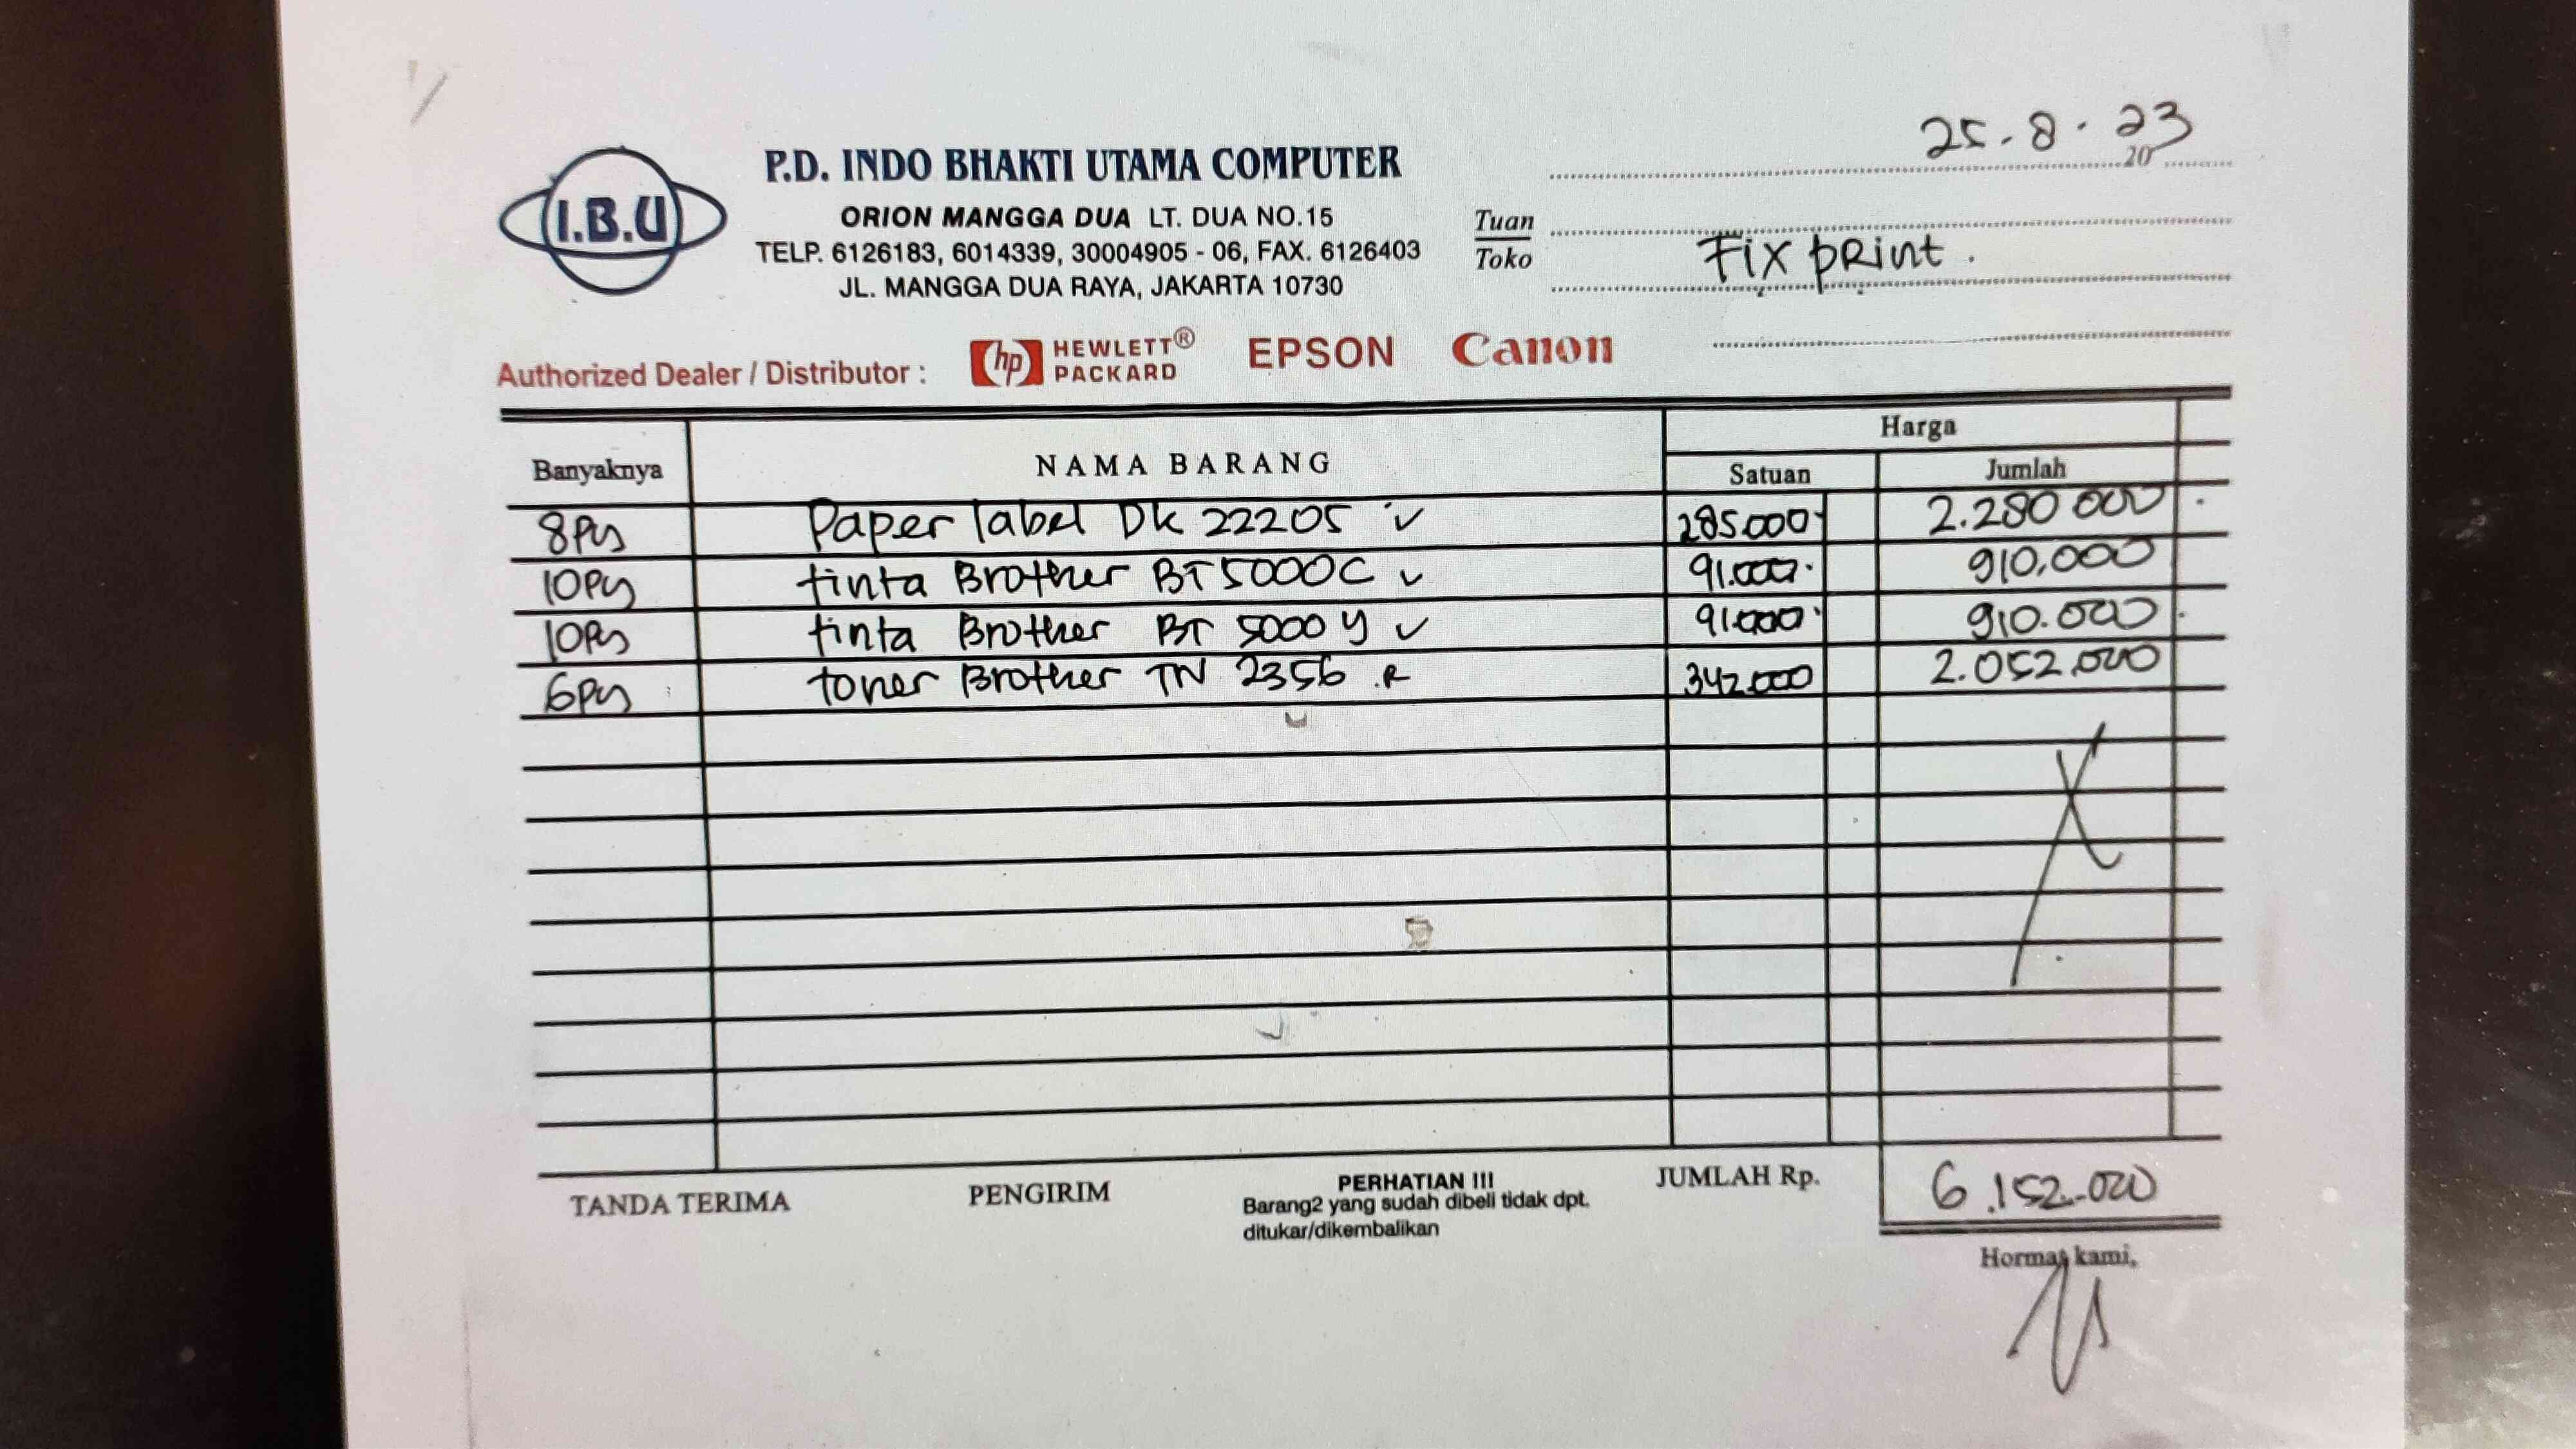 25.8.23
20
P.D. INDO BHAKTI UTAMA COMPUTER
I.B.U
ORION MANGGA DUA LT. DUA NO.15
TELP. 6126183, 6014339, 30004905 - 06, FAX. 6126403
JL. MANGGA DUA RAYA, JAKARTA 10730
Tuan
Toko
Fix print.
Authorized Dealer / Distributor : hp HEWLETT® PACKARD EPSON Canon
Banyaknya NAMA BARANG Harga
Satuan Jumlah
8Pcs Paper label DK 22205 ✓ 285.000 2.280 000
10Pcs tinta Brother BT5000C ✓ 91.000 910,000
10Pcs tinta Brother BT 5000 Y ✓ 91.000 910.000
6Pcs toner Brother TN 2356 342.000 2.052.000
TANDA TERIMA PENGIRIM PERHATIAN III JUMLAH Rp. 6.152.000
Barang2 yang sudah dibeli tidak dpt.
ditukar/dikembalikan
Hormat kami,